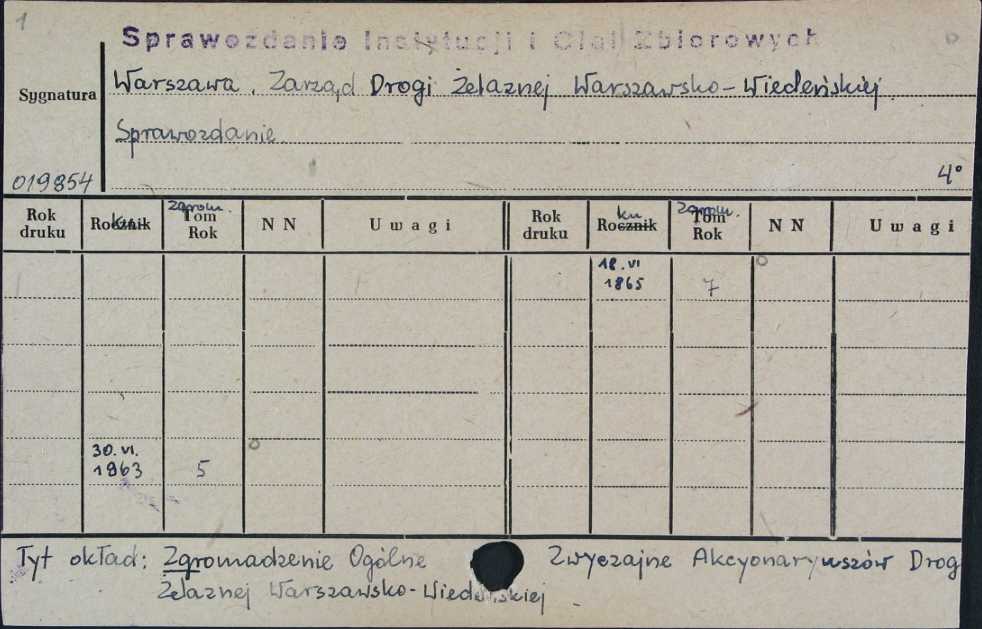 1
Sprawozdanie Instytucji i Ciał Zbiorowych
Sygnatura
Warszawa. Zarząd Drogi Żelaznej Warszawsko-Wiedeńskiej.
Sprawozdanie.
019854
4°
Rok druku
Rocznik
Tom Rok
zgrom.
N N
Uwagi
Rok druku
Rocznik
Tom Rok
zgrom.
N N
Uwagi
18.VI
1865 7
30.VI.
1863 5
Tyt okład: Zgromadzenie Ogólne Zwyczajne Akcyonaryuszów Drog
Żelaznej Warszawsko-Wiedeńskiej